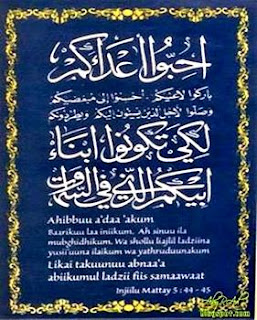 احبّوا أعداءكم
باركوا لاعنيكم. أحسنوا إلى مبغضيكم
وصلوا لأجل الذين يسيئون إليكم ويطردونكم
لكي تكونوا أبناء
أبيكم الذي في السماوات
Ahibbuu a'daa 'akum
Baarikuu laa iniikum. Ah sinuu ila
mubghidhikum. Wa shollu liajlil ladziina
yusii'uuna ilaikum wa yathruduunakum
Likai takuunuu abnaa'a
abiikumul ladzii fiis samaawaat
Injiilu Mattay 5 : 44 - 45